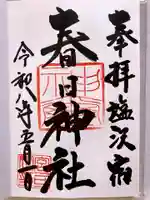 奉拝塩次宿
春日神社
令和八年五月一日